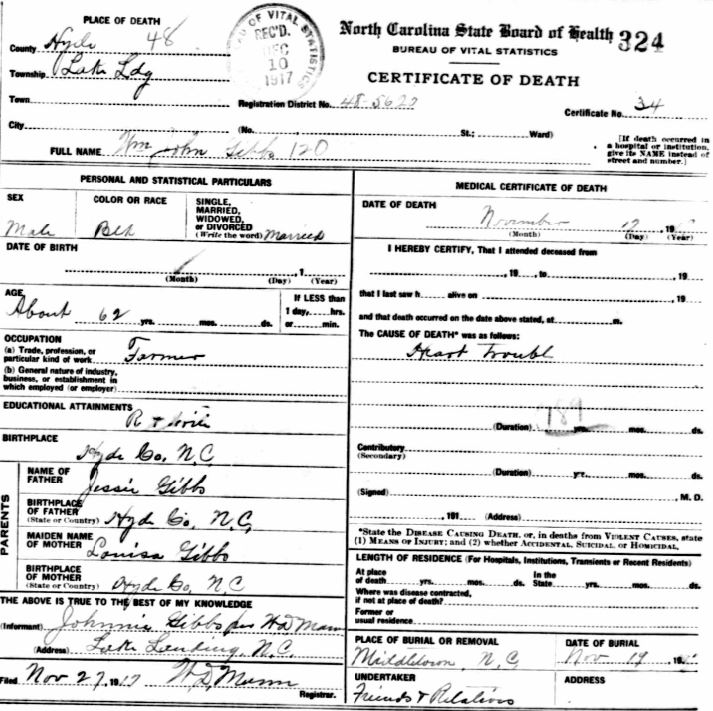 PLACE OF DEATH
County Hyde 48
Township Lake Ldg
Town
City
BUREAU OF VITAL STATISTICS
REC'D.
DEC
10
1917
North Carolina State Board of Health 324
BUREAU OF VITAL STATISTICS
CERTIFICATE OF DEATH
Registration District No. 48-5627
Certificate No. 34
(No. , St.; Ward)
[If death occurred in
a hospital or institution,
give its NAME instead of
street and number.]
FULL NAME Wm John Gibbs 120
PERSONAL AND STATISTICAL PARTICULARS
SEX
Male
COLOR OR RACE
Blk
SINGLE,
MARRIED,
WIDOWED,
or DIVORCED
(Write the word) Married
DATE OF BIRTH
, 1
(Month) (Day) (Year)
AGE
About 62 yrs. mos. ds.
If LESS than
1 day, hrs.
or min.
OCCUPATION
(a) Trade, profession, or
particular kind of work Farmer
(b) General nature of industry,
business, or establishment in
which employed (or employer)
EDUCATIONAL ATTAINMENTS
R +
BIRTHPLACE
Hyde Co, N.C,
PARENTS
NAME OF
FATHER
Jessie Gibbs
BIRTHPLACE
OF FATHER
(State or Country) Hyde Co, N.C,
MAIDEN NAME
OF MOTHER
Louisa Gibbs
BIRTHPLACE
OF MOTHER
(State or Country) Hyde Co, N.C
THE ABOVE IS TRUE TO THE BEST OF MY KNOWLEDGE
(Informant) Johnnie Gibbs per W.D. Mann
(Address) Lake Landing, N.C.
Filed Nov 27, 1917 W.D. Mann
Registrar.
MEDICAL CERTIFICATE OF DEATH
DATE OF DEATH
November , 19
(Month) (Day) (Year)
I HEREBY CERTIFY, That I attended deceased from
, 19 , to , 19
that I last saw h alive on , 19
and that death occurred on the date above stated, at m.
The CAUSE OF DEATH* was as follows:
Heart troubl
189
(Duration) yrs. mos. ds.
Contributory
(Secondary)
(Duration) yr. mos. ds.
(Signed) , M. D.
, 191 (Address)
*State the DISEASE CAUSING DEATH, or, in deaths from VIOLENT CAUSES, state
(1) MEANS OF INJURY; and (2) whether ACCIDENTAL, SUICIDAL, or HOMICIDAL,
LENGTH OF RESIDENCE (For Hospitals, Institutions, Transients or Recent Residents)
At place
of death yrs. mos. ds.
In the
State yrs. mos. ds.
Where was disease contracted,
if not at place of death?
Former or
usual residence
PLACE OF BURIAL OR REMOVAL
Middletown, N.C,
DATE OF BURIAL
Nov 19, 19
UNDERTAKER
Friends & Relatives
ADDRESS